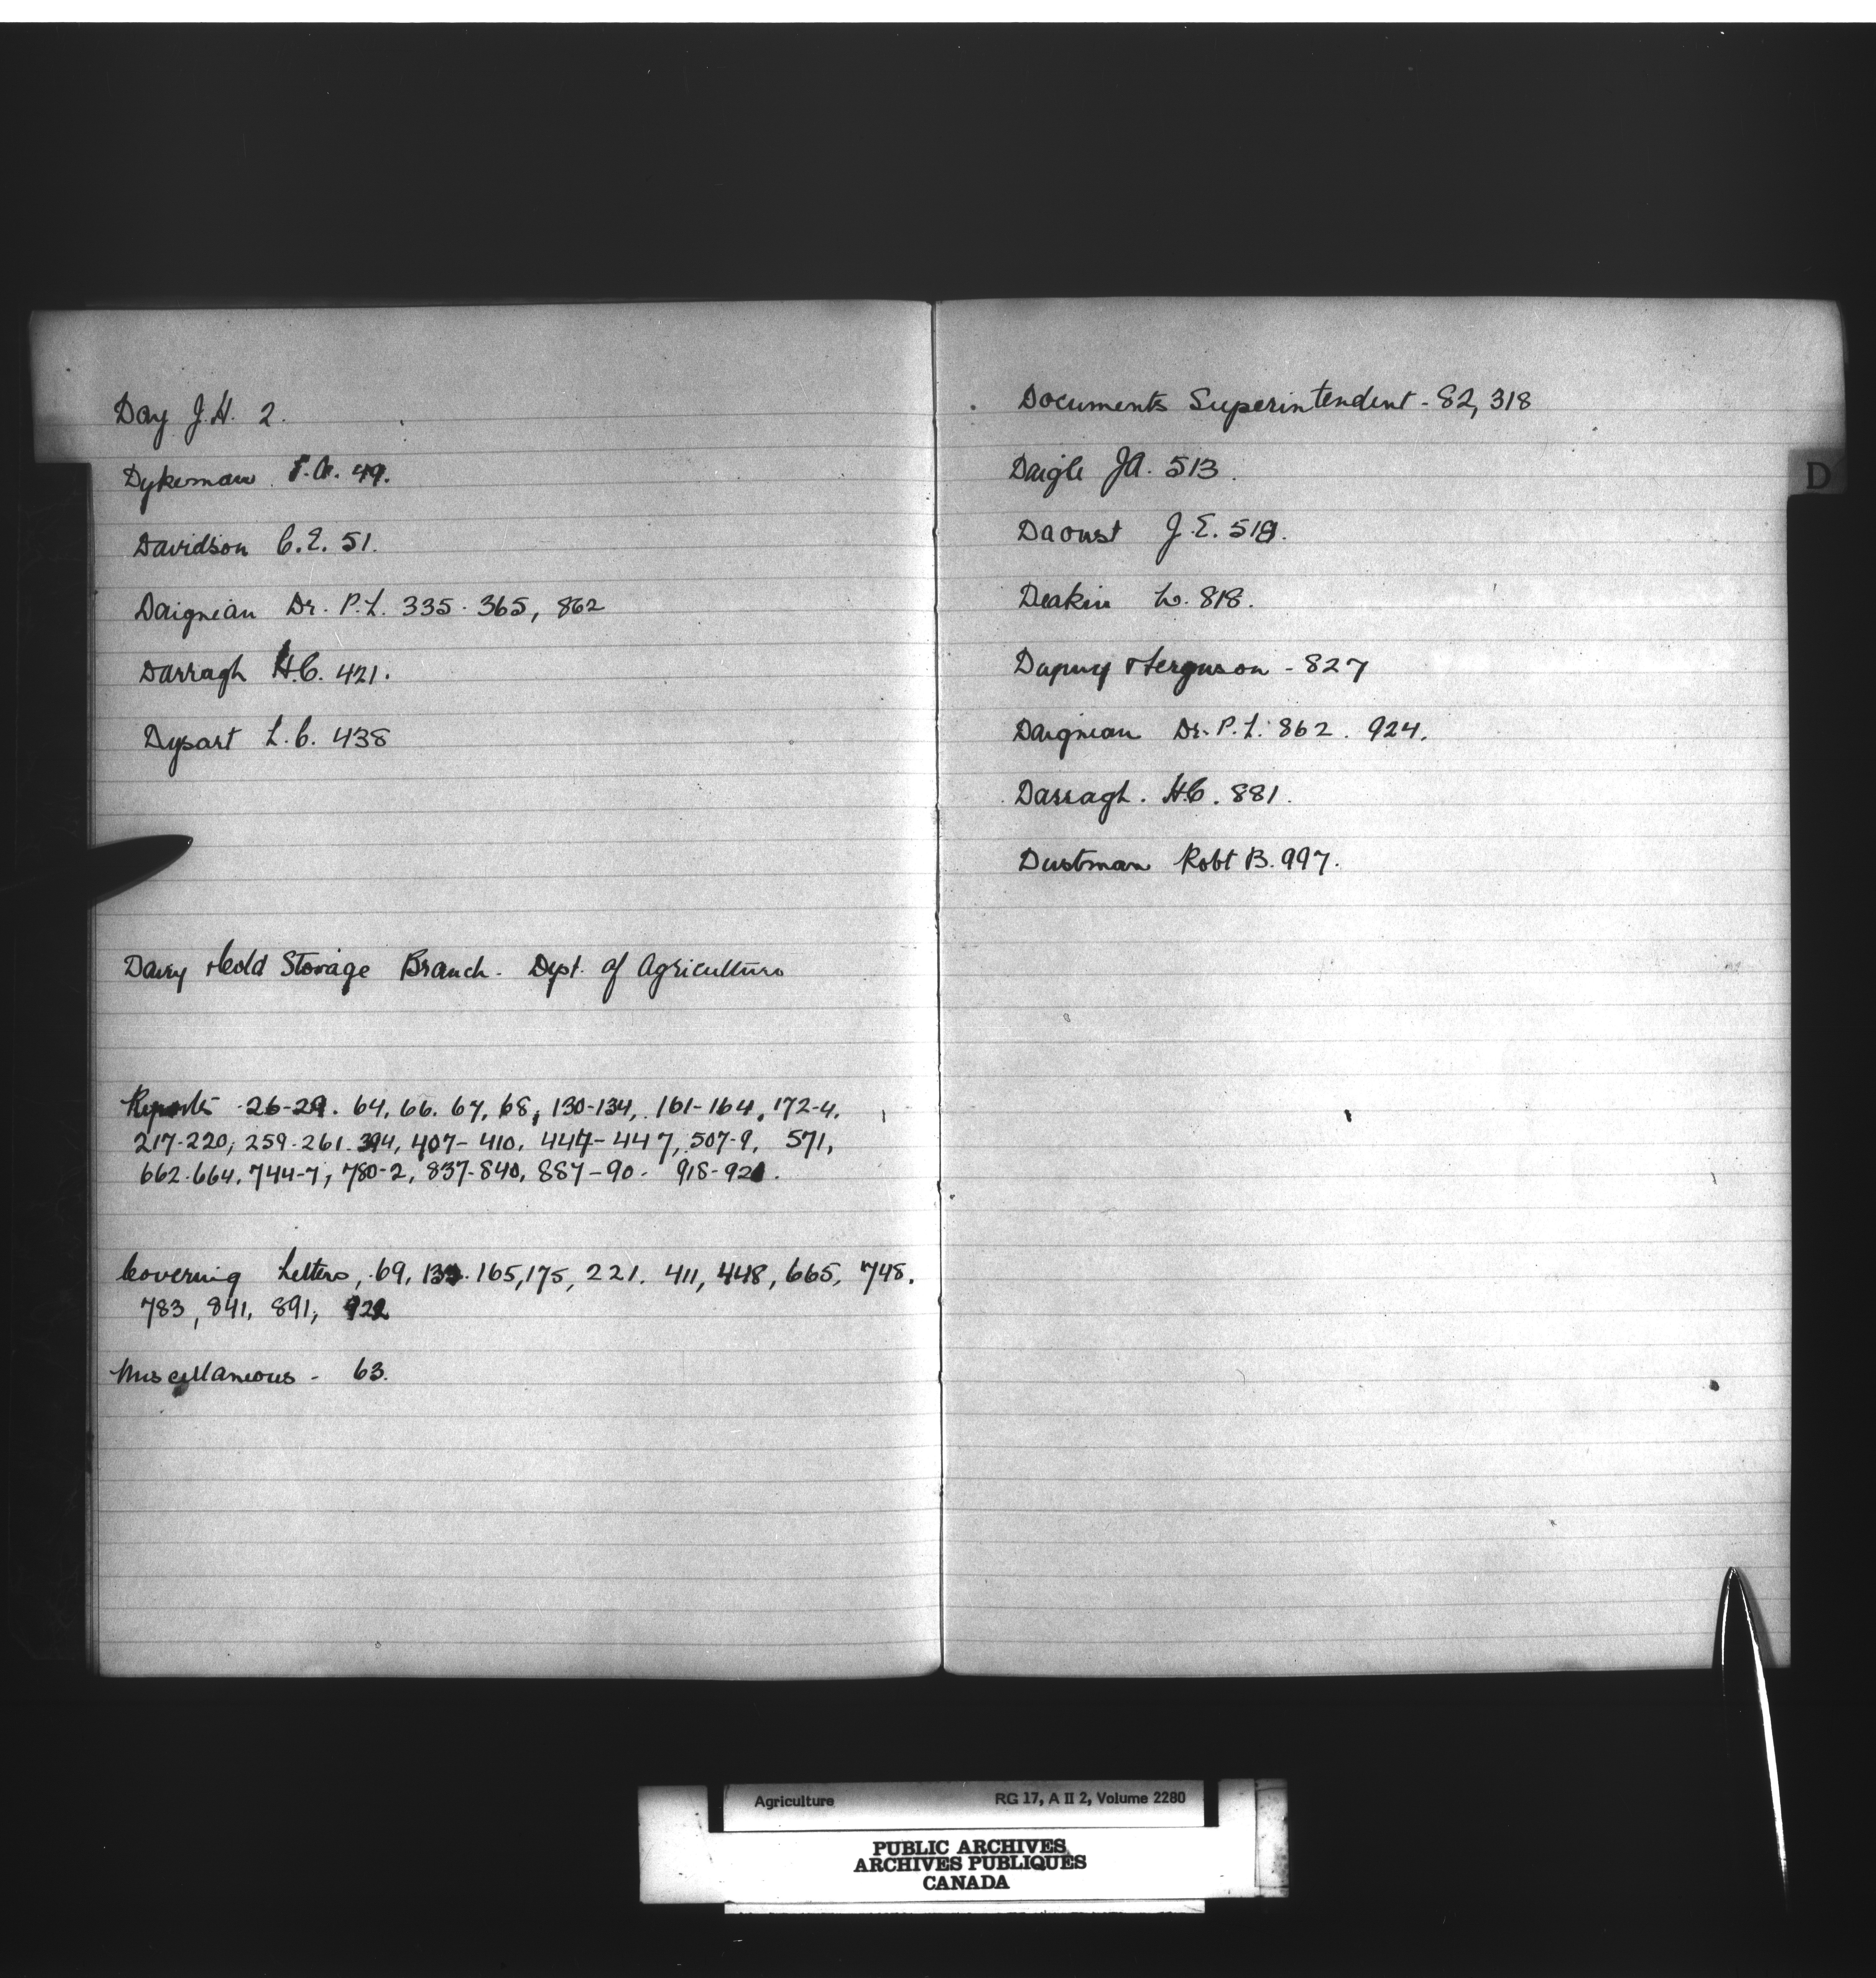 Day J.H. 2.
Dykeman F.A. 49.
Davidson C.E. 51.
Daigneau Dr. P.L. 335. 365, 862
Darragh H.C. 421.
Dysart L.C. 438
Dairy & Cold Storage Branch - Dept. of Agriculture
Reports 26-29. 64, 66. 67, 68, 130-134, 161-164, 172-4,
217-220, 259-261. 394, 407-410, 444-447, 507-9, 571,
662-664, 744-7, 780-2, 837-840, 887-90. 918-921.
Covering Letters, 69, 165, 175, 221. 411, 448, 665, 748.
783, 841, 891, 922
Miscellaneous - 63.
Documents Superintendent - 82, 318
Daigle J.A. 513.
Daoust J.E. 519.
Deakin W. 818.
Dupuy & Ferguson - 827
Daigneau Dr. P.L. 862. 924.
Darragh. H.C. 881.
Dustman Robt B. 997.
D
Agriculture RG 17, A II 2, Volume 2280
PUBLIC ARCHIVES
ARCHIVES PUBLIQUES
CANADA